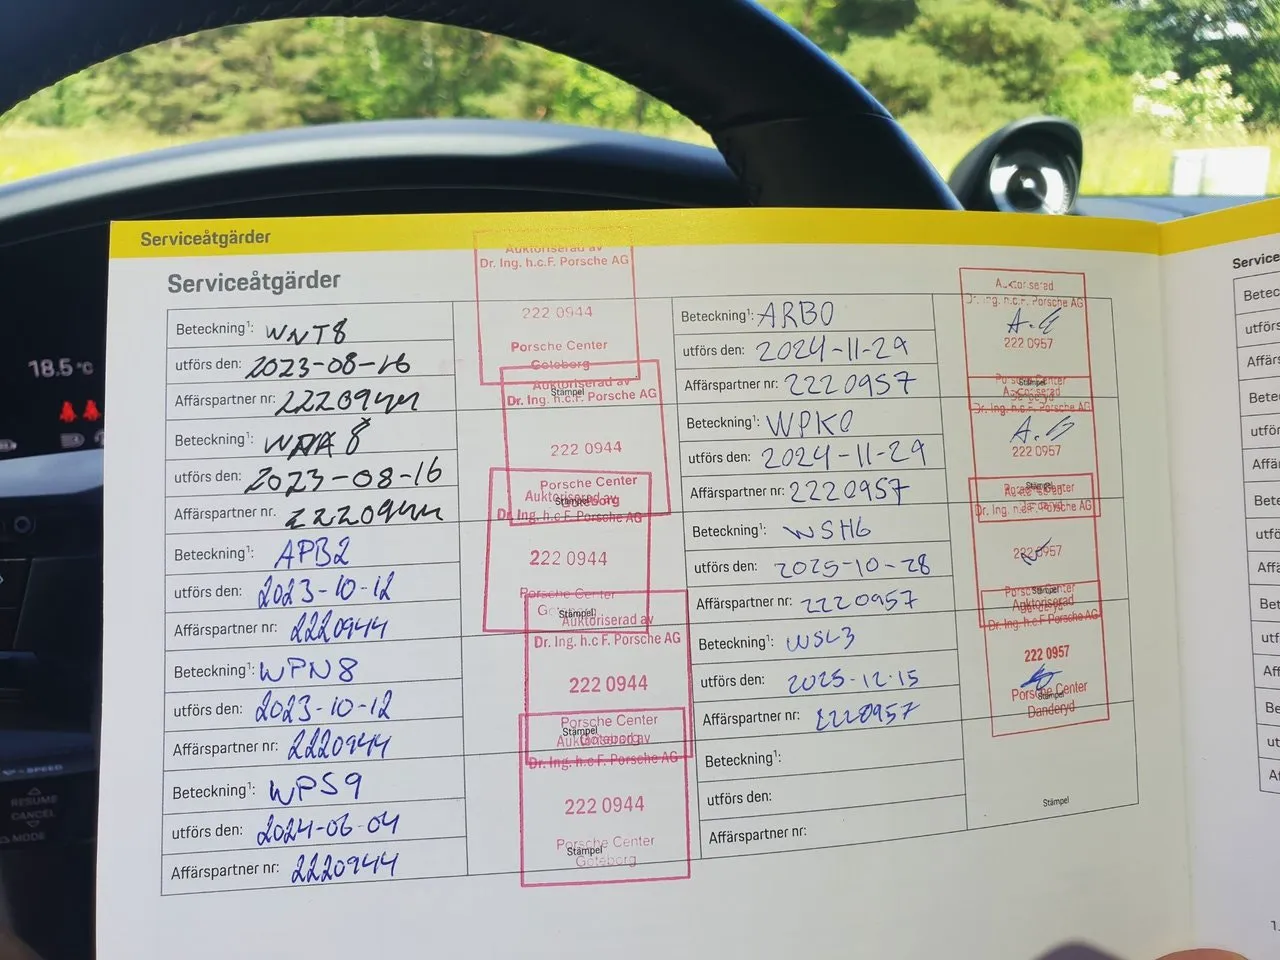 Serviceåtgärder
Serviceåtgärder
Beteckning¹: WNT8
utförs den: 2023-08-16
Affärspartner nr: 2220944
Auktoriserad av
Dr. Ing. h.c.F. Porsche AG
222 0944
Porsche Center
Göteborg
Stämpel
Beteckning¹:
utförs den: 2023-08-16
Affärspartner nr: 2220944
Auktoriserad av
Dr. Ing. h.c.F. Porsche AG
222 0944
Porsche Center
Göteborg
Stämpel
Beteckning¹: APB2
utförs den: 2023-10-12
Affärspartner nr: 2220944
Auktoriserad av
Dr. Ing. h.c.F. Porsche AG
222 0944
Porsche Center
Göteborg
Stämpel
Beteckning¹: WPN8
utförs den: 2023-10-12
Affärspartner nr: 2220944
Auktoriserad av
Dr. Ing. h.c.F. Porsche AG
222 0944
Porsche Center
Göteborg
Stämpel
Beteckning¹: WPS9
utförs den: 2024-06-04
Affärspartner nr: 2220944
Auktoriserad av
Dr. Ing. h.c.F. Porsche AG
222 0944
Porsche Center
Göteborg
Stämpel
Beteckning¹: ARB0
utförs den: 2024-11-29
Affärspartner nr: 2220957
Auktoriserad
Dr. Ing. h.c.F. Porsche AG
222 0957
Porsche Center
Stämpel
Beteckning¹: WPK0
utförs den: 2024-11-29
Affärspartner nr: 2220957
Auktoriserad
Dr. Ing. h.c.F. Porsche AG
222 0957
Porsche Center
Stämpel
Beteckning¹: WSH6
utförs den: 2025-10-28
Affärspartner nr: 2220957
Auktoriserad
Dr. Ing. h.c.F. Porsche AG
222 0957
Porsche Center
Danderyd
Stämpel
Beteckning¹: WSL3
utförs den: 2025-12-15
Affärspartner nr: 2220957
Auktoriserad
Dr. Ing. h.c.F. Porsche AG
222 0957
Porsche Center
Danderyd
Stämpel
Beteckning¹:
utförs den:
Affärspartner nr:
Stämpel
18.5 °C
SPEED
RESUME
CANCEL
MODE
Service
Betec
utförs
Affärs